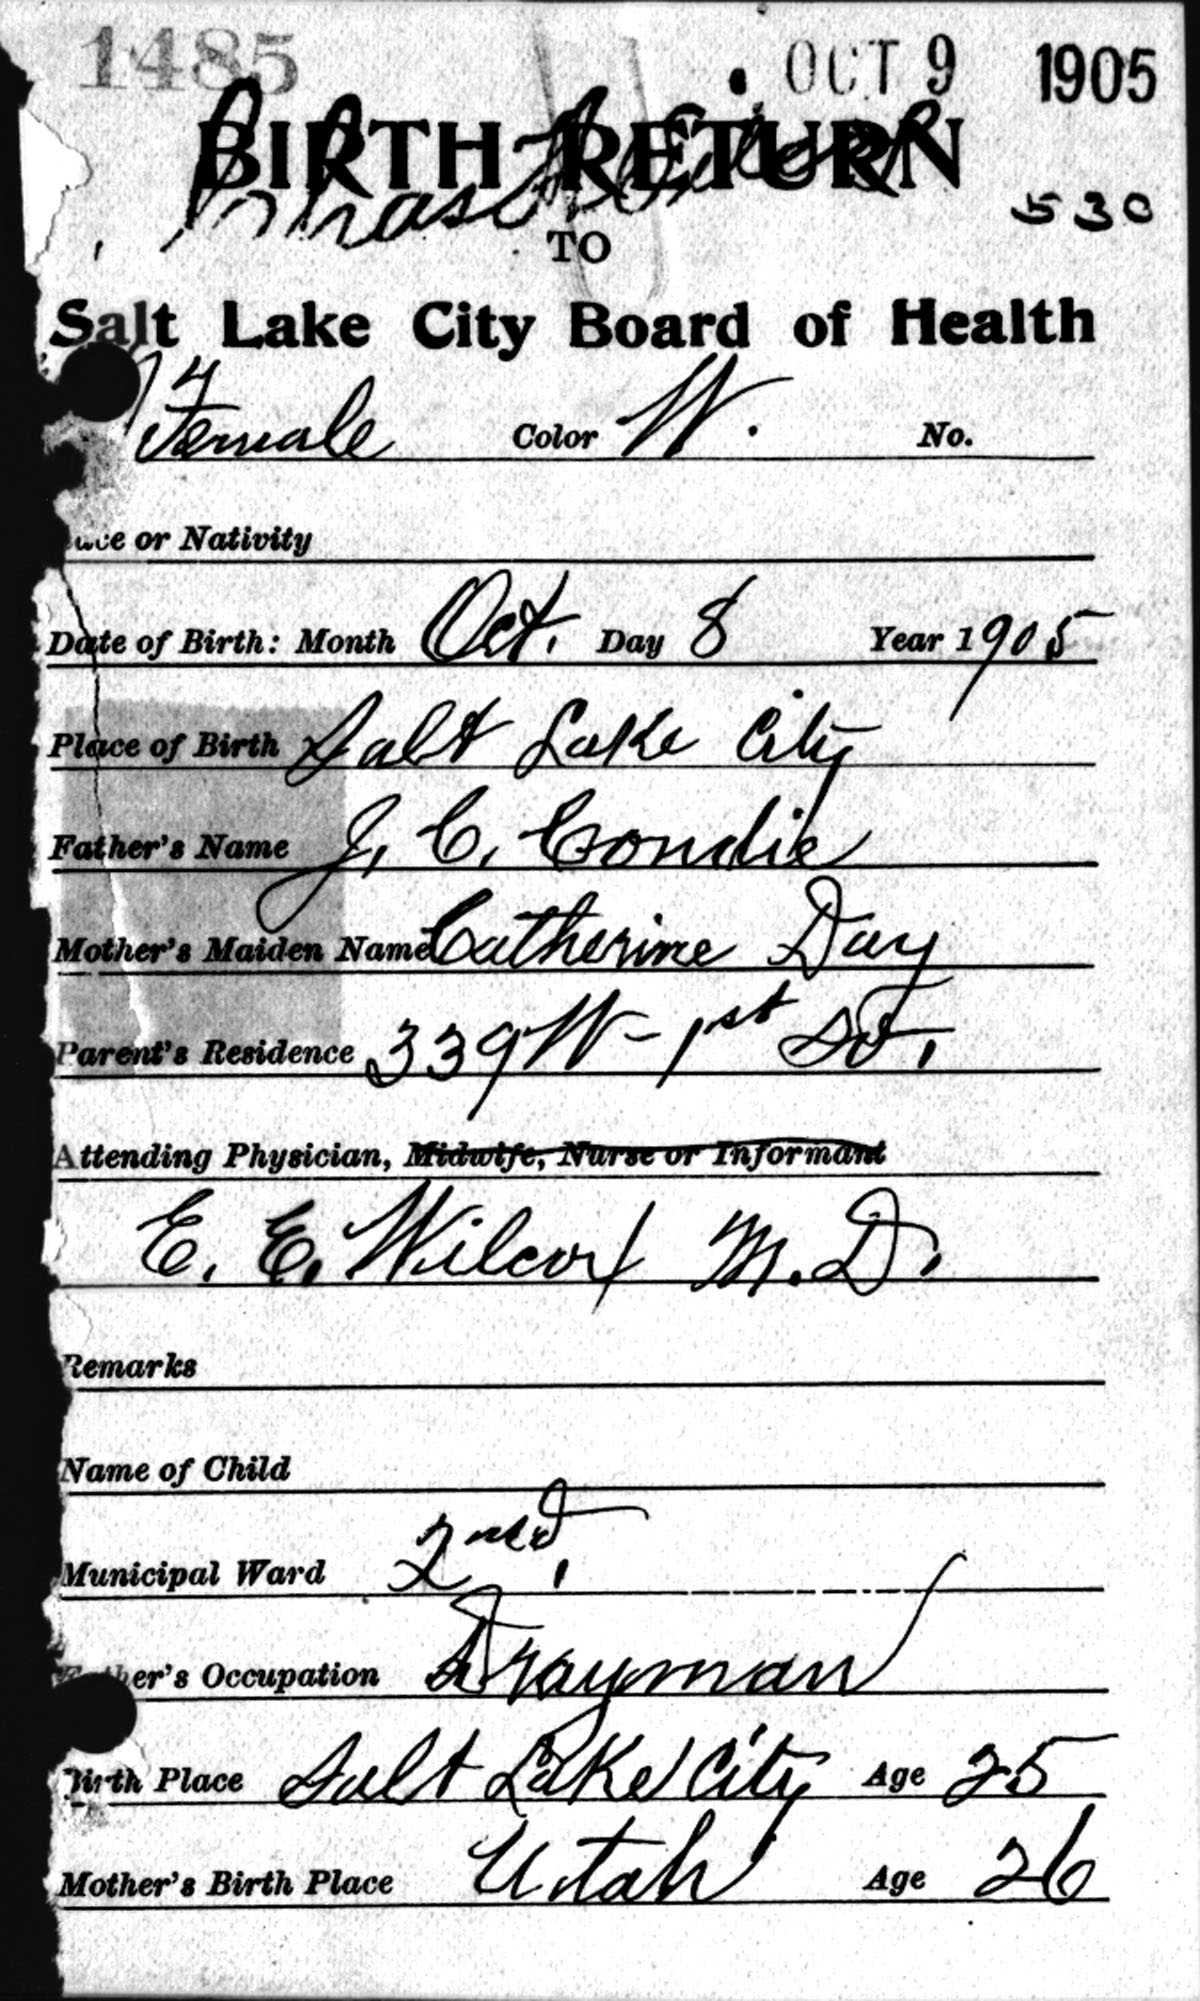 1485 OCT 9 1905
BIRTH RETURN
530
TO
Salt Lake City Board of Health
4
Female Color W. No.
or Nativity
Date of Birth: Month Oct. Day 8 Year 1905
Place of Birth Salt Lake City
Father's Name J. C. Condie
Mother's Maiden Name Catherine Day
Parent's Residence 339 W - 1st So.
Attending Physician, Midwife, Nurse or Informant
E. E. Wilcox M. D.
Remarks
Name of Child
Municipal Ward 2nd.
Father's Occupation Drayman
Birth Place Salt Lake City Age 25
Mother's Birth Place Utah Age 26